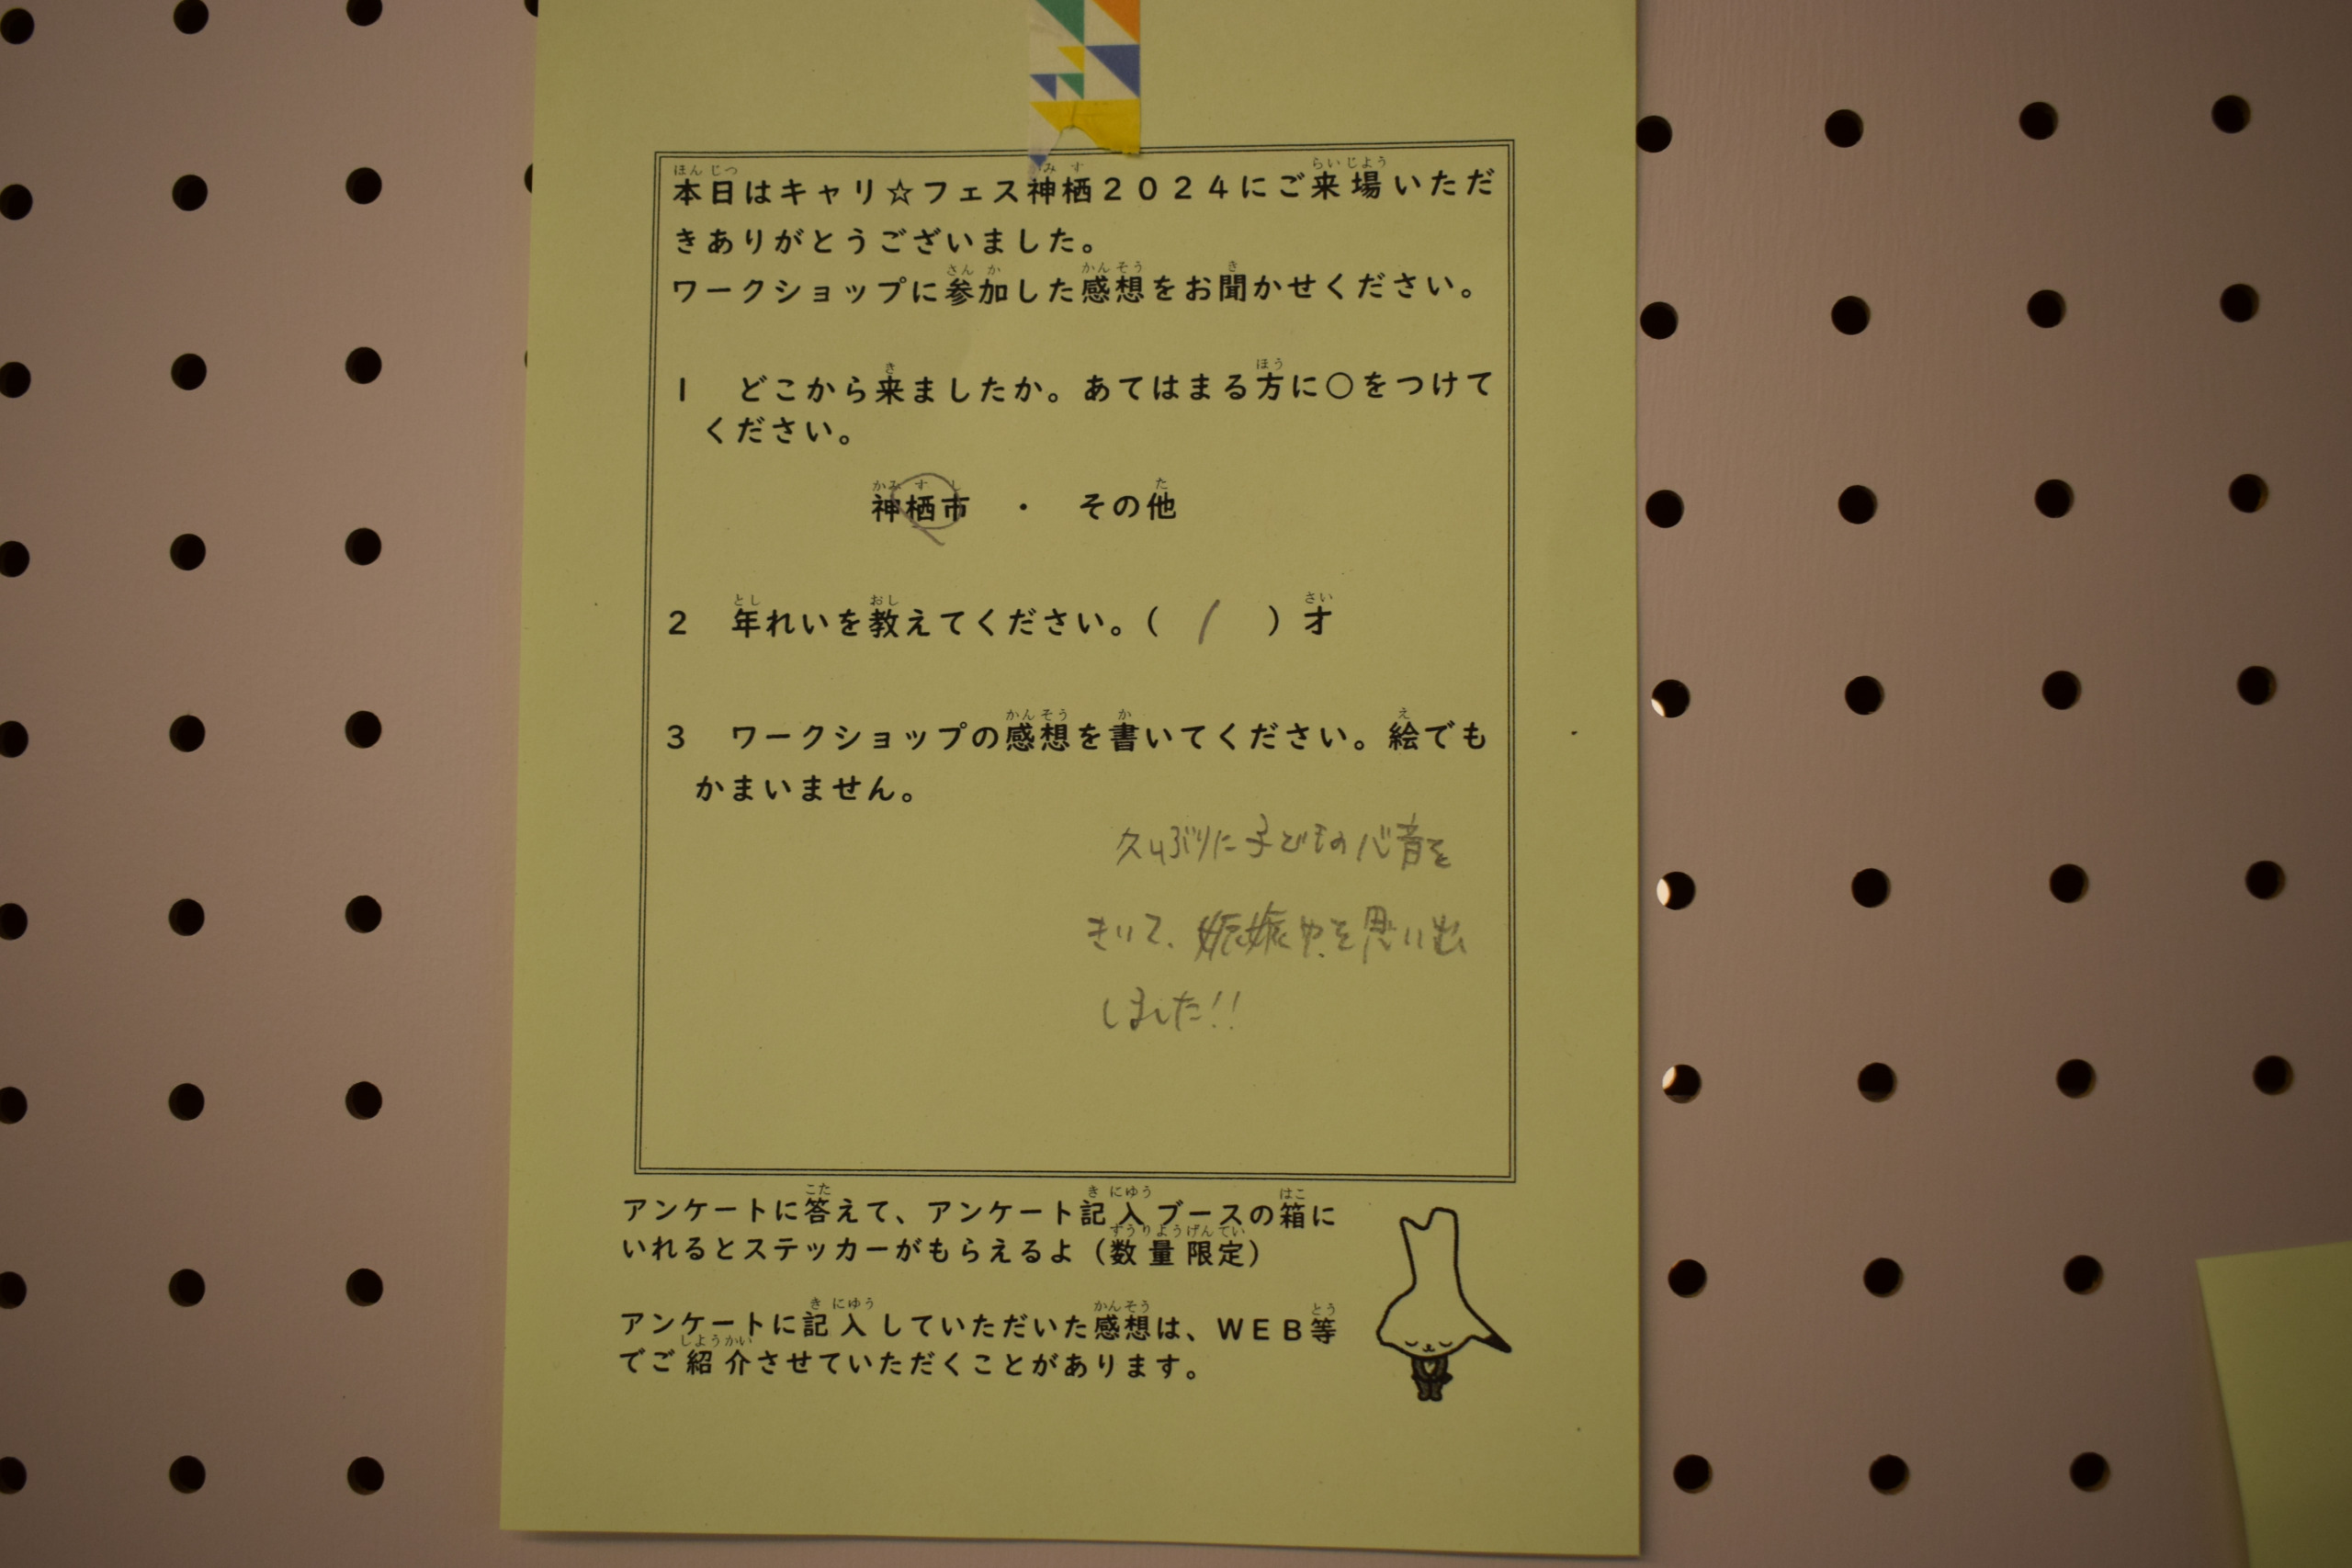 本日はキャリ☆フェス神栖2024にご来場いただ
きありがとうございました。
ワークショップに参加した感想をお聞かせください。
1 どこから来ましたか。あてはまる方に○をつけて
ください。
神栖市 ・ その他
2 年れいを教えてください。( / )才
3 ワークショップの感想を書いてください。絵でも
かまいません。
久しぶりに子どもの心音を
きいて、妊娠中を思い出
しました!!
アンケートに答えて、アンケート記入ブースの箱に
いれるとステッカーがもらえるよ(数量限定)
アンケートに記入していただいた感想は、WEB等
でご紹介させていただくことがあります。